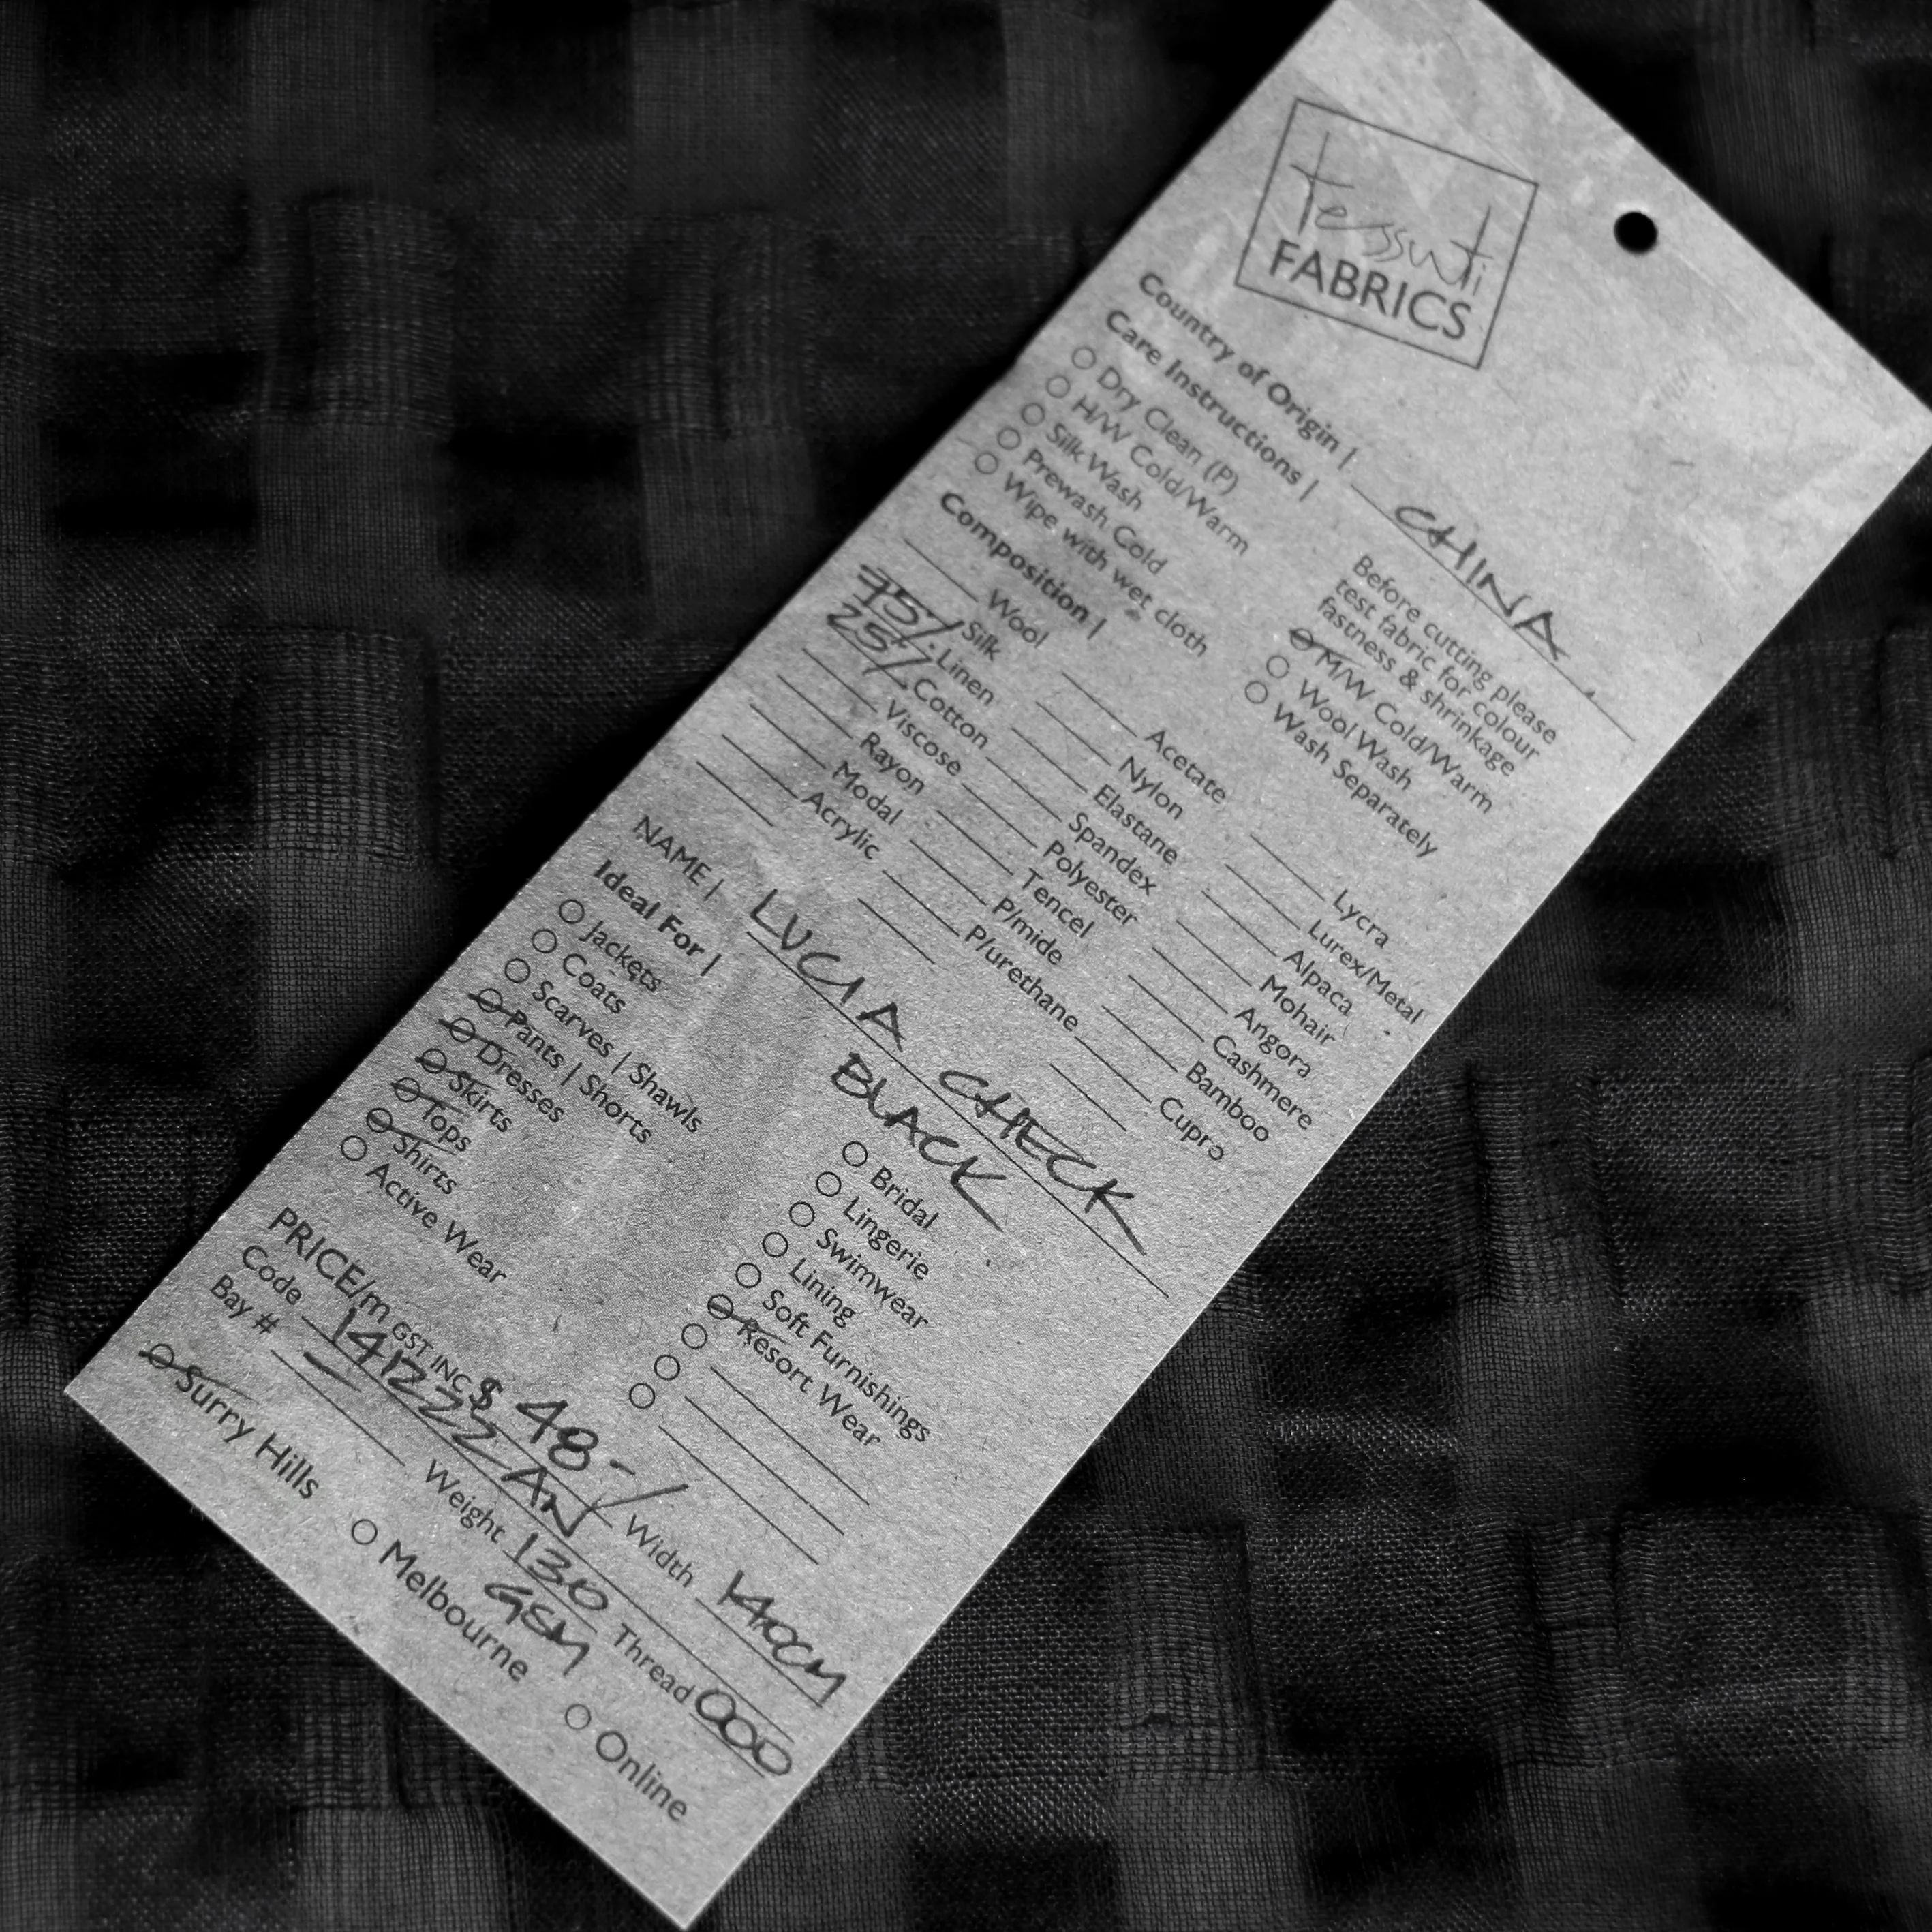 tessuti
FABRICS
Country of Origin | CHINA
Care Instructions |
Dry Clean (P)
H/W Cold/Warm
Silk Wash
Prewash Cold
Wipe with wet cloth
Before cutting please
test fabric for colour
fastness & shrinkage
M/W Cold/Warm
Wool Wash
Wash Separately
Composition |
Wool Acetate Lycra
Silk Nylon Lurex/Metal
75% Linen Elastane Alpaca
25% Cotton Spandex Mohair
Viscose Polyester Angora
Rayon Tencel Cashmere
Modal P/mide Bamboo
Acrylic P/urethane Cupro
NAME | LUCIA CHECK
BLACK
Ideal For |
Jackets
Coats
Scarves | Shawls
Pants | Shorts
Dresses
Skirts
Tops
Shirts
Active Wear
Bridal
Lingerie
Swimwear
Lining
Soft Furnishings
Resort Wear
PRICE/m GST INC $ 48-/
Code 141222 AN Width 140CM
Bay # — Weight 130 GSM Thread 000
Surry Hills Melbourne Online